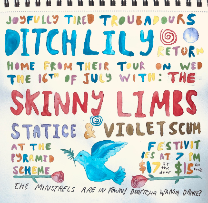 JOYFULLY TIRED TROUBADOURS
DITCH LILY RETURN
HOME FROM THEIR TOUR ON WED
THE 16TH OF JULY WITH: THE
SKINNY LIMBS
STATICE & VIOLET SCUM
AT THE PYRAMID SCHEME
FESTIVITIES AT 7 PM
$17 $15
THE MINSTRELS ARE IN TOWN!